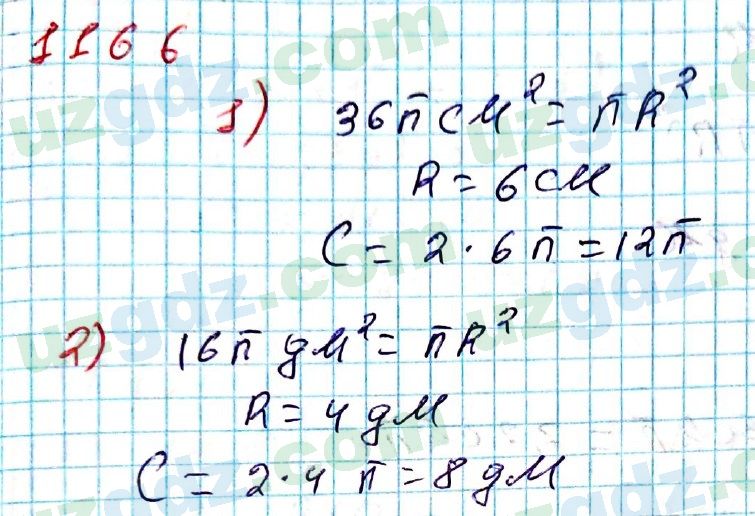 1166
1) 36π см² = πR²
R = 6 см
C = 2·6π = 12π
2) 16π дм² = πR²
R = 4 дм
C = 2·4π = 8 дм
uzgdz.com
uzgdz.com
uzgdz.com
uzgdz.com